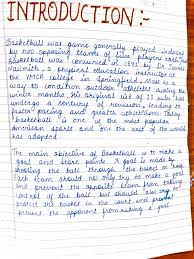 INTRODUCTION :-
Basketball was game generally played indoors
by two opposing teams of five players each.
Basketball was conceived in 1891 by Dr. James
Naismith a physical education instructor at
the YMCA college in Springfield, Mass as a
way to condition outdoor athletes during the
winter months. His original list of 13 rules has
undergone a century of revision, leading to
faster pacing and greater athleticism. Today
basketball is one of the most popular
American sports and one the rest of the world
has adopted.
The main objective of Basketball is to make a
goal and score points. A goal is made by
shooting the ball through the basket or hoop.
Each team should not only try to make a goal
and prevent the opposite team from taking
control of the ball, but should also try to
protect the basket in the court and prevent
prevent the opponent from making a